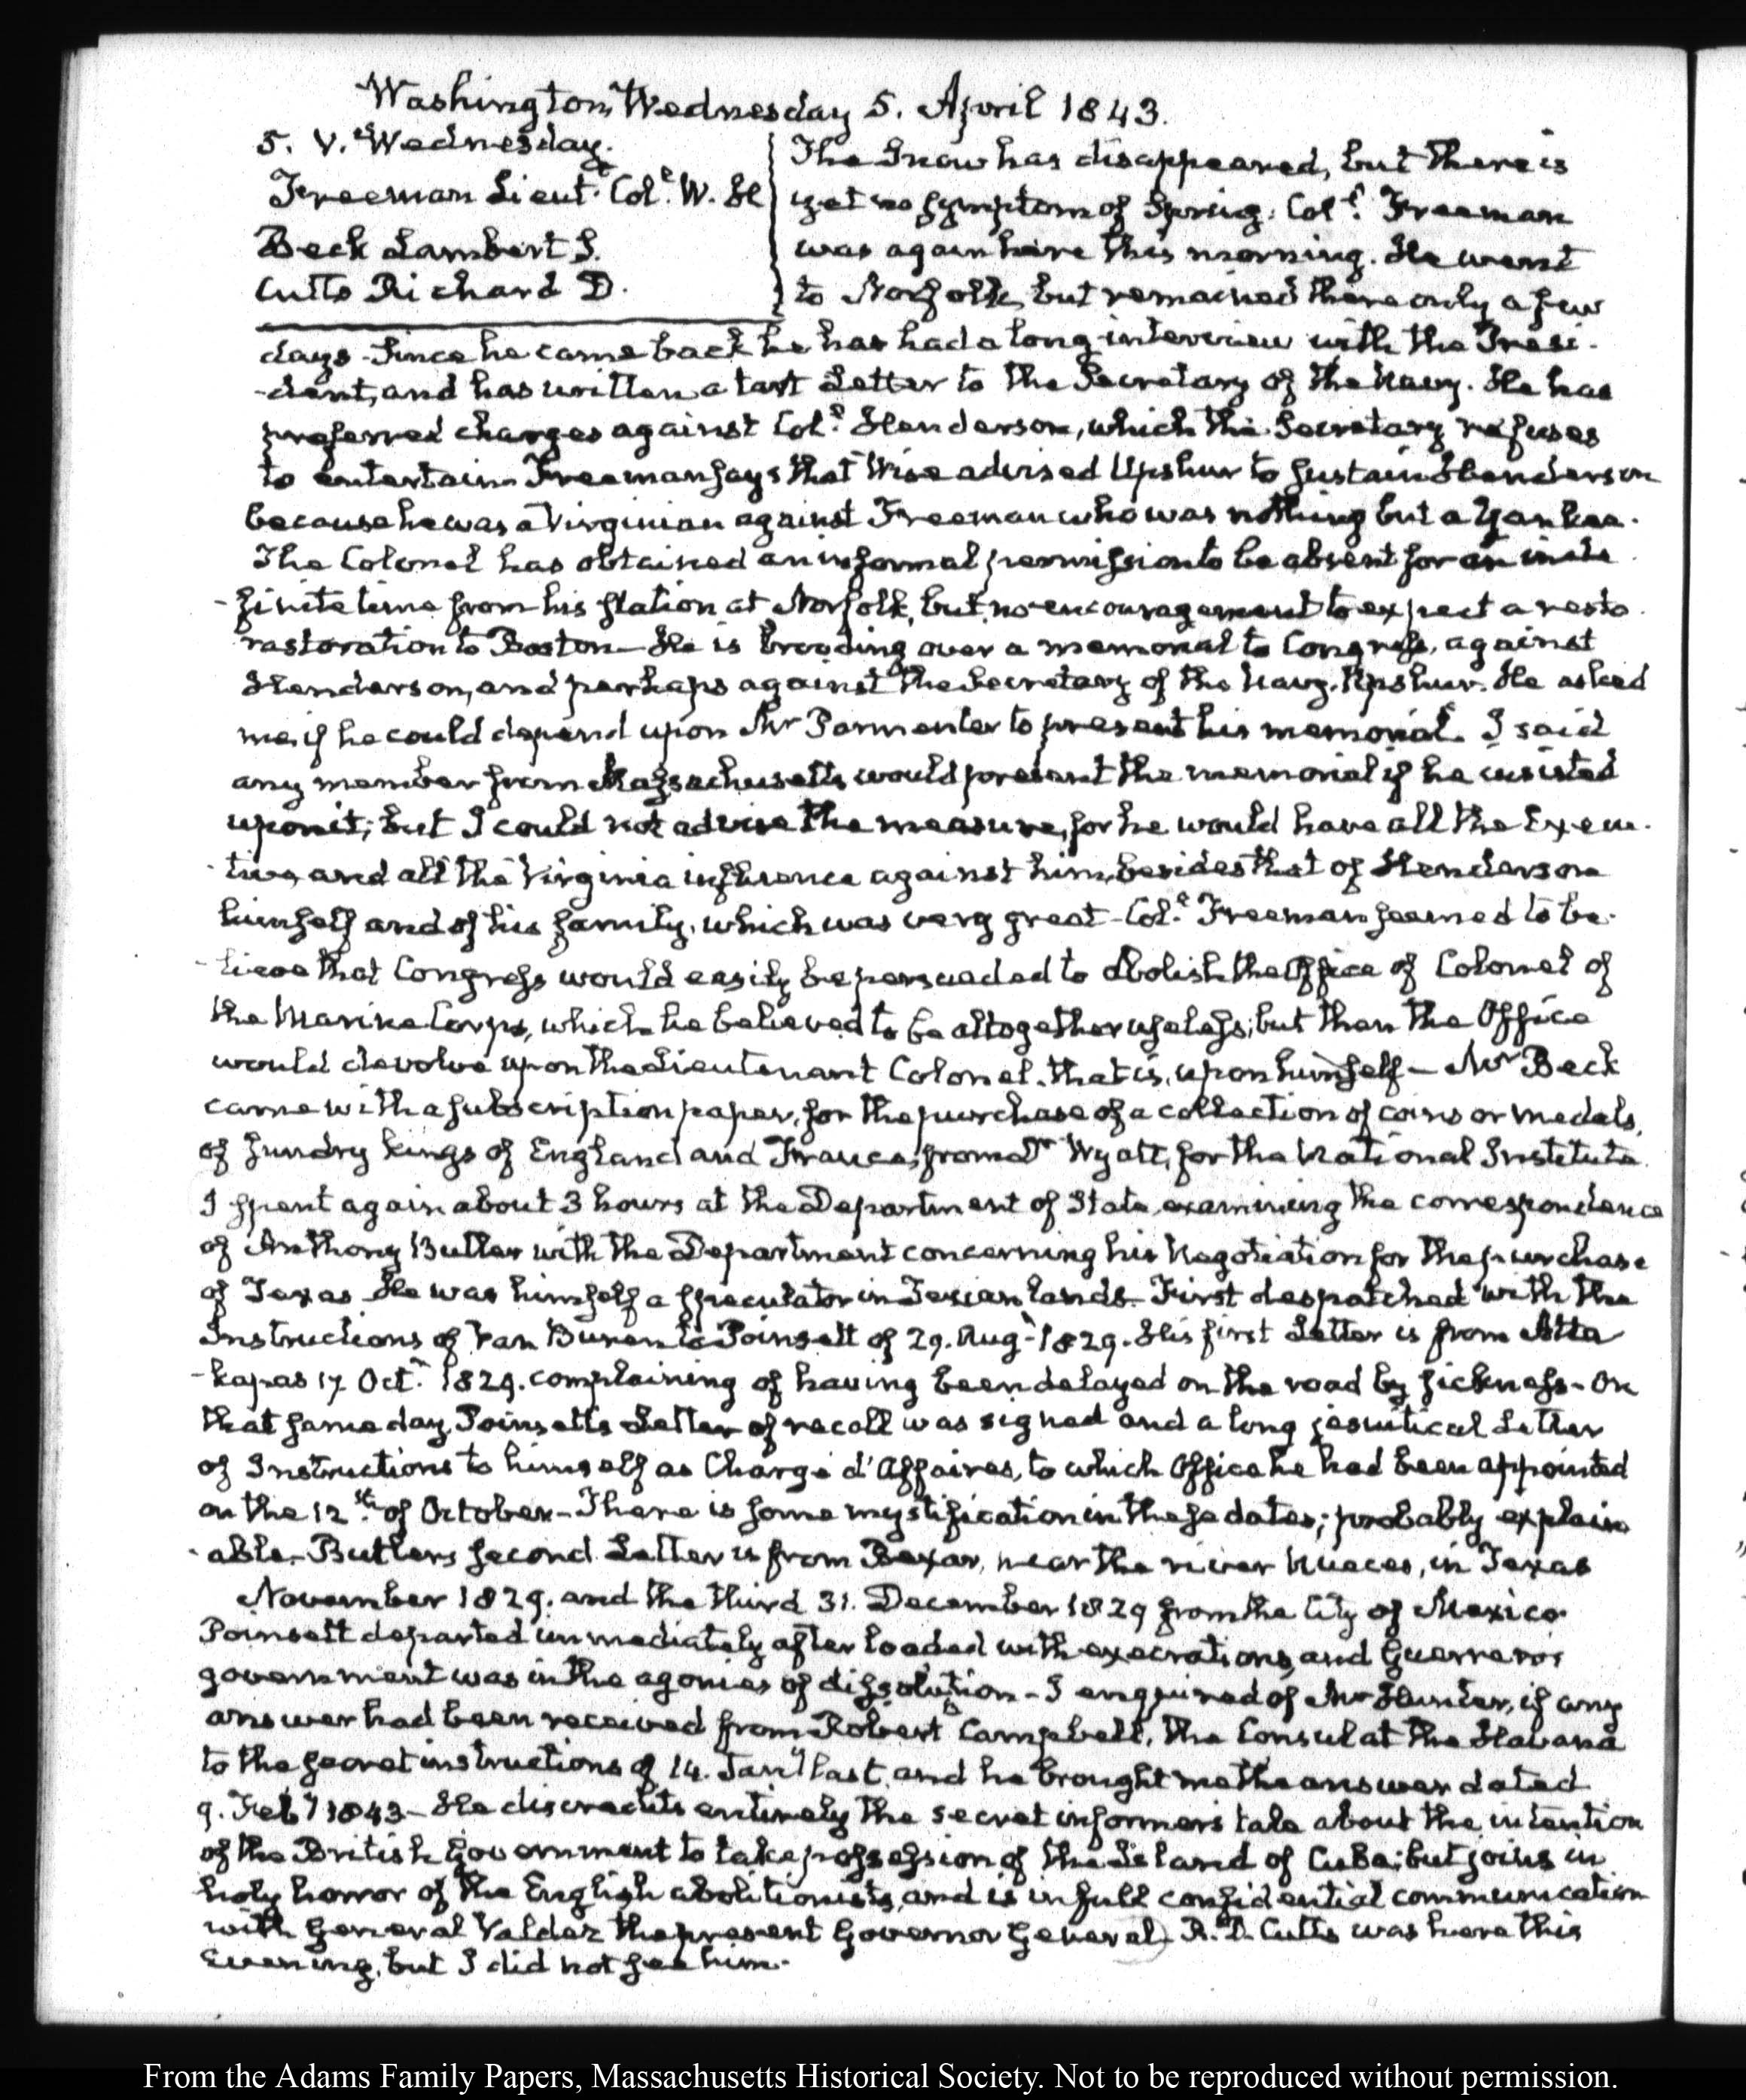 Washington, Wednesday 5. April 1843.
5. V. Wednesday.
Freeman Lieut. Col. W. H
Beck Lambert S.
Cutts Richard D.
The Snow has disappeared, but there is
yet no symptom of Spring. Col. Freeman
was again here this morning. He went
to Norfolk, but remained there only a few
days. Since he came back he has had a long interview with the Presi-
-dent, and has written a tart Letter to the Secretary of the Navy. He has
preferred charges against Col. Henderson, which the Secretary refuses
to entertain. Freeman says that Wise advised Upshur to sustain Henderson
because he was a Virginian against Freeman who was nothing but a Yankee.
The Colonel has obtained an informal permission to be absent for an inde
-finite time from his station at Norfolk, but no encouragement to expect a resto
rastoration to Boston—He is brooding over a memorial to Congress, against
Henderson, and perhaps against the Secretary of the Navy, Upshur. He asked
me, if he could depend upon Mr Parmenter to present his memorial. I said
any member from Massachusetts would present the memorial if he insisted
upon it; but I could not advise the measure, for he would have all the Execu-
-tive, and all the Virginia influence against him, besides that of Henderson
himself and of his family, which was very great—Col. Freeman seemed to be-
-lieve that Congress would easily be persuaded to abolish the Office of Colonel of
the Marine Corps, which he believed to be altogether useless; but then the Office
would devolve upon the Lieutenant Colonel. that is, upon himself—Mr Beck
came with a subscription paper, for the purchase of a collection of coins or medals,
of sundry kings of England and France, from a Dr Wyatt, for the National Institute.
I spent again about 3 hours at the Department of State, examining the correspondence
of Anthony Butler with the Department concerning his Negotiation for the purchase
of Texas. He was himself a speculator in Texian lands. First despatched with the
Instructions of Van Buren to Poinsett of 29. Aug. 1829. His first Letter is from Atta
-kapas 17 Oct. 1829. complaining of having been delayed on the road by sickness—On
that same day, Poinsetts Letter of recall was signed and a long jesuitical Letter
of Instructions to himself as Chargé d'Affaires, to which Office he had been appointed
on the 12th of October—There is some mystification in these dates; probably explain
-able. Butlers second Letter is from Bexar, near the river Nueces, in Texas
November 1829. and the third 31. December 1829 from the City of Mexico.
Poinsett departed immediately after loaded with execrations, and Guerrero's
government was in the agonies of dissolution—I enquired of Mr Hunter, if any
answer had been received from Robert B Campbell, the Consul at the Havana
to the secret instructions of 14. Jany last, and he brought me the answer dated
9. Feby 1843—He discredits entirely the secret informers tale about the intention
of the British Government to take possession of the Island of Cuba; but joins in
holy horror of the English abolitionists, and is in full confidential communication
with General Valdez the present Governor General. R. D. Cutts was here this
Evening, but I did not see him.
From the Adams Family Papers, Massachusetts Historical Society. Not to be reproduced without permission.